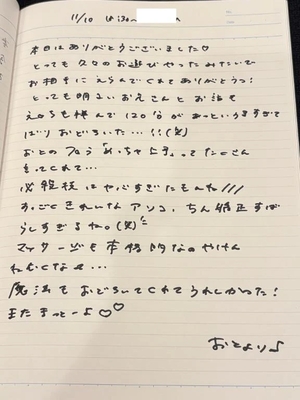 11/10
本日はありがとうございました♡
とっても久々のお遊びやったみたいで
お相手にえらんでくれてありがとうっ!
とっても明るいお兄さんとお話も
エロも楽しんで120分があっというますぎて
ばりおどろいた...!!(笑)
おとのフェラ「めっちゃ上手」ってたくさん
言ってくれて...
必殺技はやばすぎたもんね///
すっごくきれいなアソコ、ちん
すぎるね。(笑)
マッサージも本格的なのやけん
ねむくなる...
魔法もおどろいてくれてうれしかった!
またまっとーよ♡♡
おとより♪